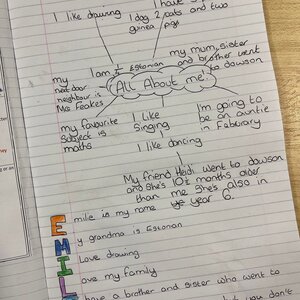 I have
I like drawing
1 dog, 2 cats and two
guinea pigs
I am ½ Estonian
my mum, sister
and brother went
to dowson
my
next door
neighbour is
Mrs Feakes
All About me!
my favourite
subject is
maths
I like
Singing
I'm going to
be an auntie
in Fabruary
I like dancing
My friend Heidi went to dowson
and she's 10½ months older
than me She's also in
year 6.
Emile is my name
y grandma is Estonian
Love drawing
ove my family
have a brother and sister who went to
you don't